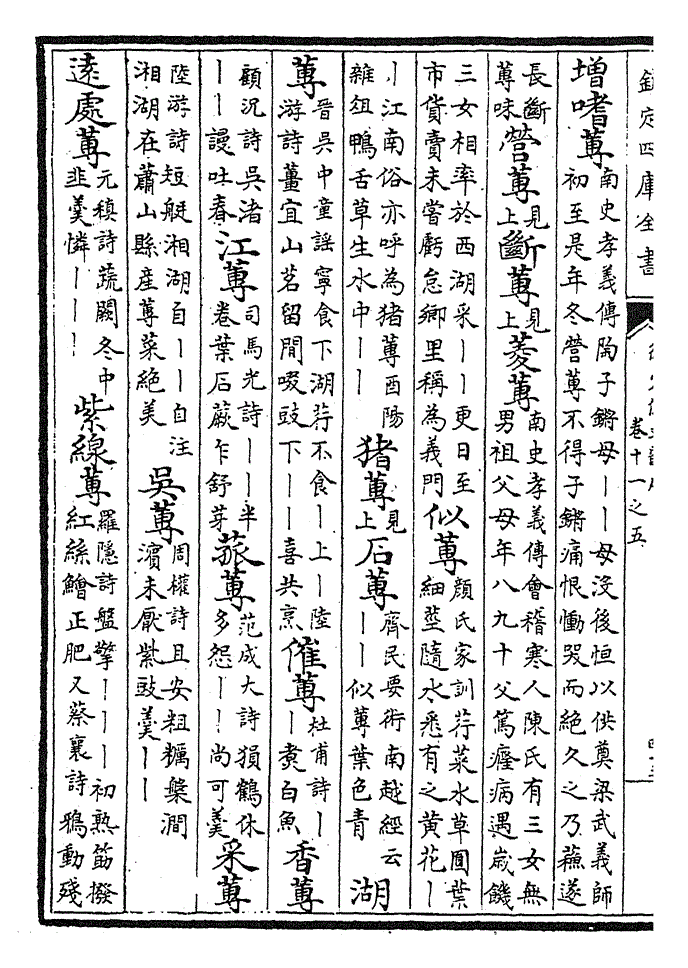 欽定四庫全書
卷十一之五
增嗜蓴南史孝義傳陶子鏘母丨丨母没後恒以供奠梁武義師初至是年冬營蓴不得子鏘痛恨慟哭而絕久之乃蘇遂
長斷蓴味營蓴見上斷蓴見上菱蓴南史孝義傳會稽寒人陳氏有三女無男祖父母年八九十父篤癃病遇歲饑
三女相率於西湖采丨丨更日至市貨賣未嘗虧怠鄉里稱為義門似蓴顔氏家訓荇菜水草圓葉細莖隨水悉有之黄花丨
丨江南俗亦呼為猪蓴酉陽雜俎鴨舌草生水中丨丨猪蓴見上石蓴齊民要術南越經云丨丨似蓴葉色青湖
蓴晉吳中童謡寧食下湖荇不食丨上丨陸游詩薑宜山茗留間啜豉下丨丨喜共烹催蓴杜甫詩丨丨煑白魚香蓴
顧况詩吳渚丨丨謾吐春江蓴司馬光詩丨丨半卷葉石蕨乍舒芽菰蓴范成大詩猿鶴休多怨丨丨尚可羮采蓴
陸游詩短艇湘湖自丨丨自注湘湖在蕭山縣産蓴菜絶美吳蓴周權詩且安粗糲槃澗濱未厭紫豉羮丨丨
遠處蓴元稹詩蔬闕冬中韭羮憐丨丨丨紫線蓴羅隱詩盤擎丨丨丨初熟筯撥紅絲鱠正肥又蔡襄詩鴉動殘